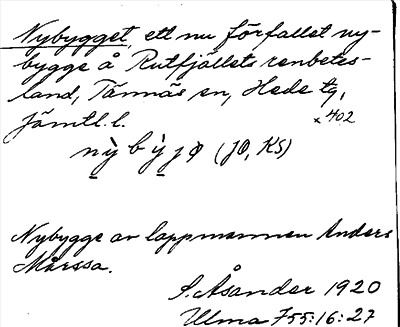 Nybygget, ett nu förfallet ny-
bygge å Rutfjällets renbetes-
land, Tännäs sn, Hede tg,
Jämtl. l. × 402
nỳ b ỳ jø (JØ, KS)
Nybygge av lappmannen Anders
Mårssa.
S. Åsander 1920
Ulma 755:16:27